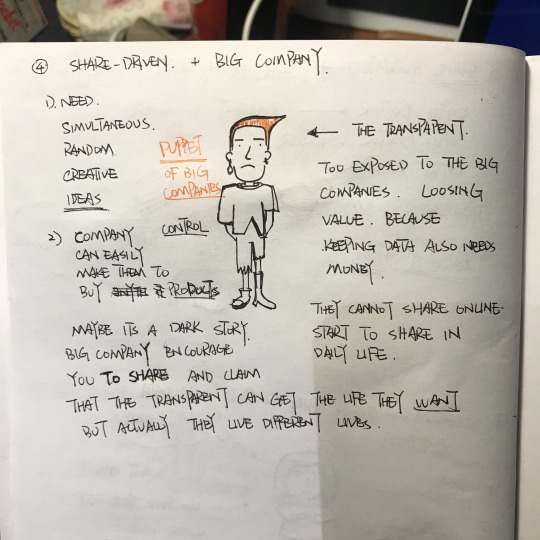 ④ SHARE-DRIVEN. + BIG COMPANY.
1). NEED.
SIMULTANEOUS.
RANDOM
CREATIVE
IDEAS
PUPPET
OF BIG
COMPANIES
CONTROL
2) COMPANY
CAN EASILY
MAKE THEM TO
BUY PRODUCTS
← THE TRANSPARENT.
TOO EXPOSED TO THE BIG
COMPANIES. LOOSING
VALUE. BECAUSE
KEEPING DATA ALSO NEEDS
MONEY.
THEY CANNOT SHARE ONLINE.
START TO SHARE IN
DAILY LIFE.
MAYBE ITS A DARK STORY.
BIG COMPANY ENCOURAGE
YOU TO SHARE AND CLAIM
THAT THE TRANSPARENT CAN GET THE LIFE THEY WANT
BUT ACTUALLY THEY LIVE DIFFERENT LIVES.